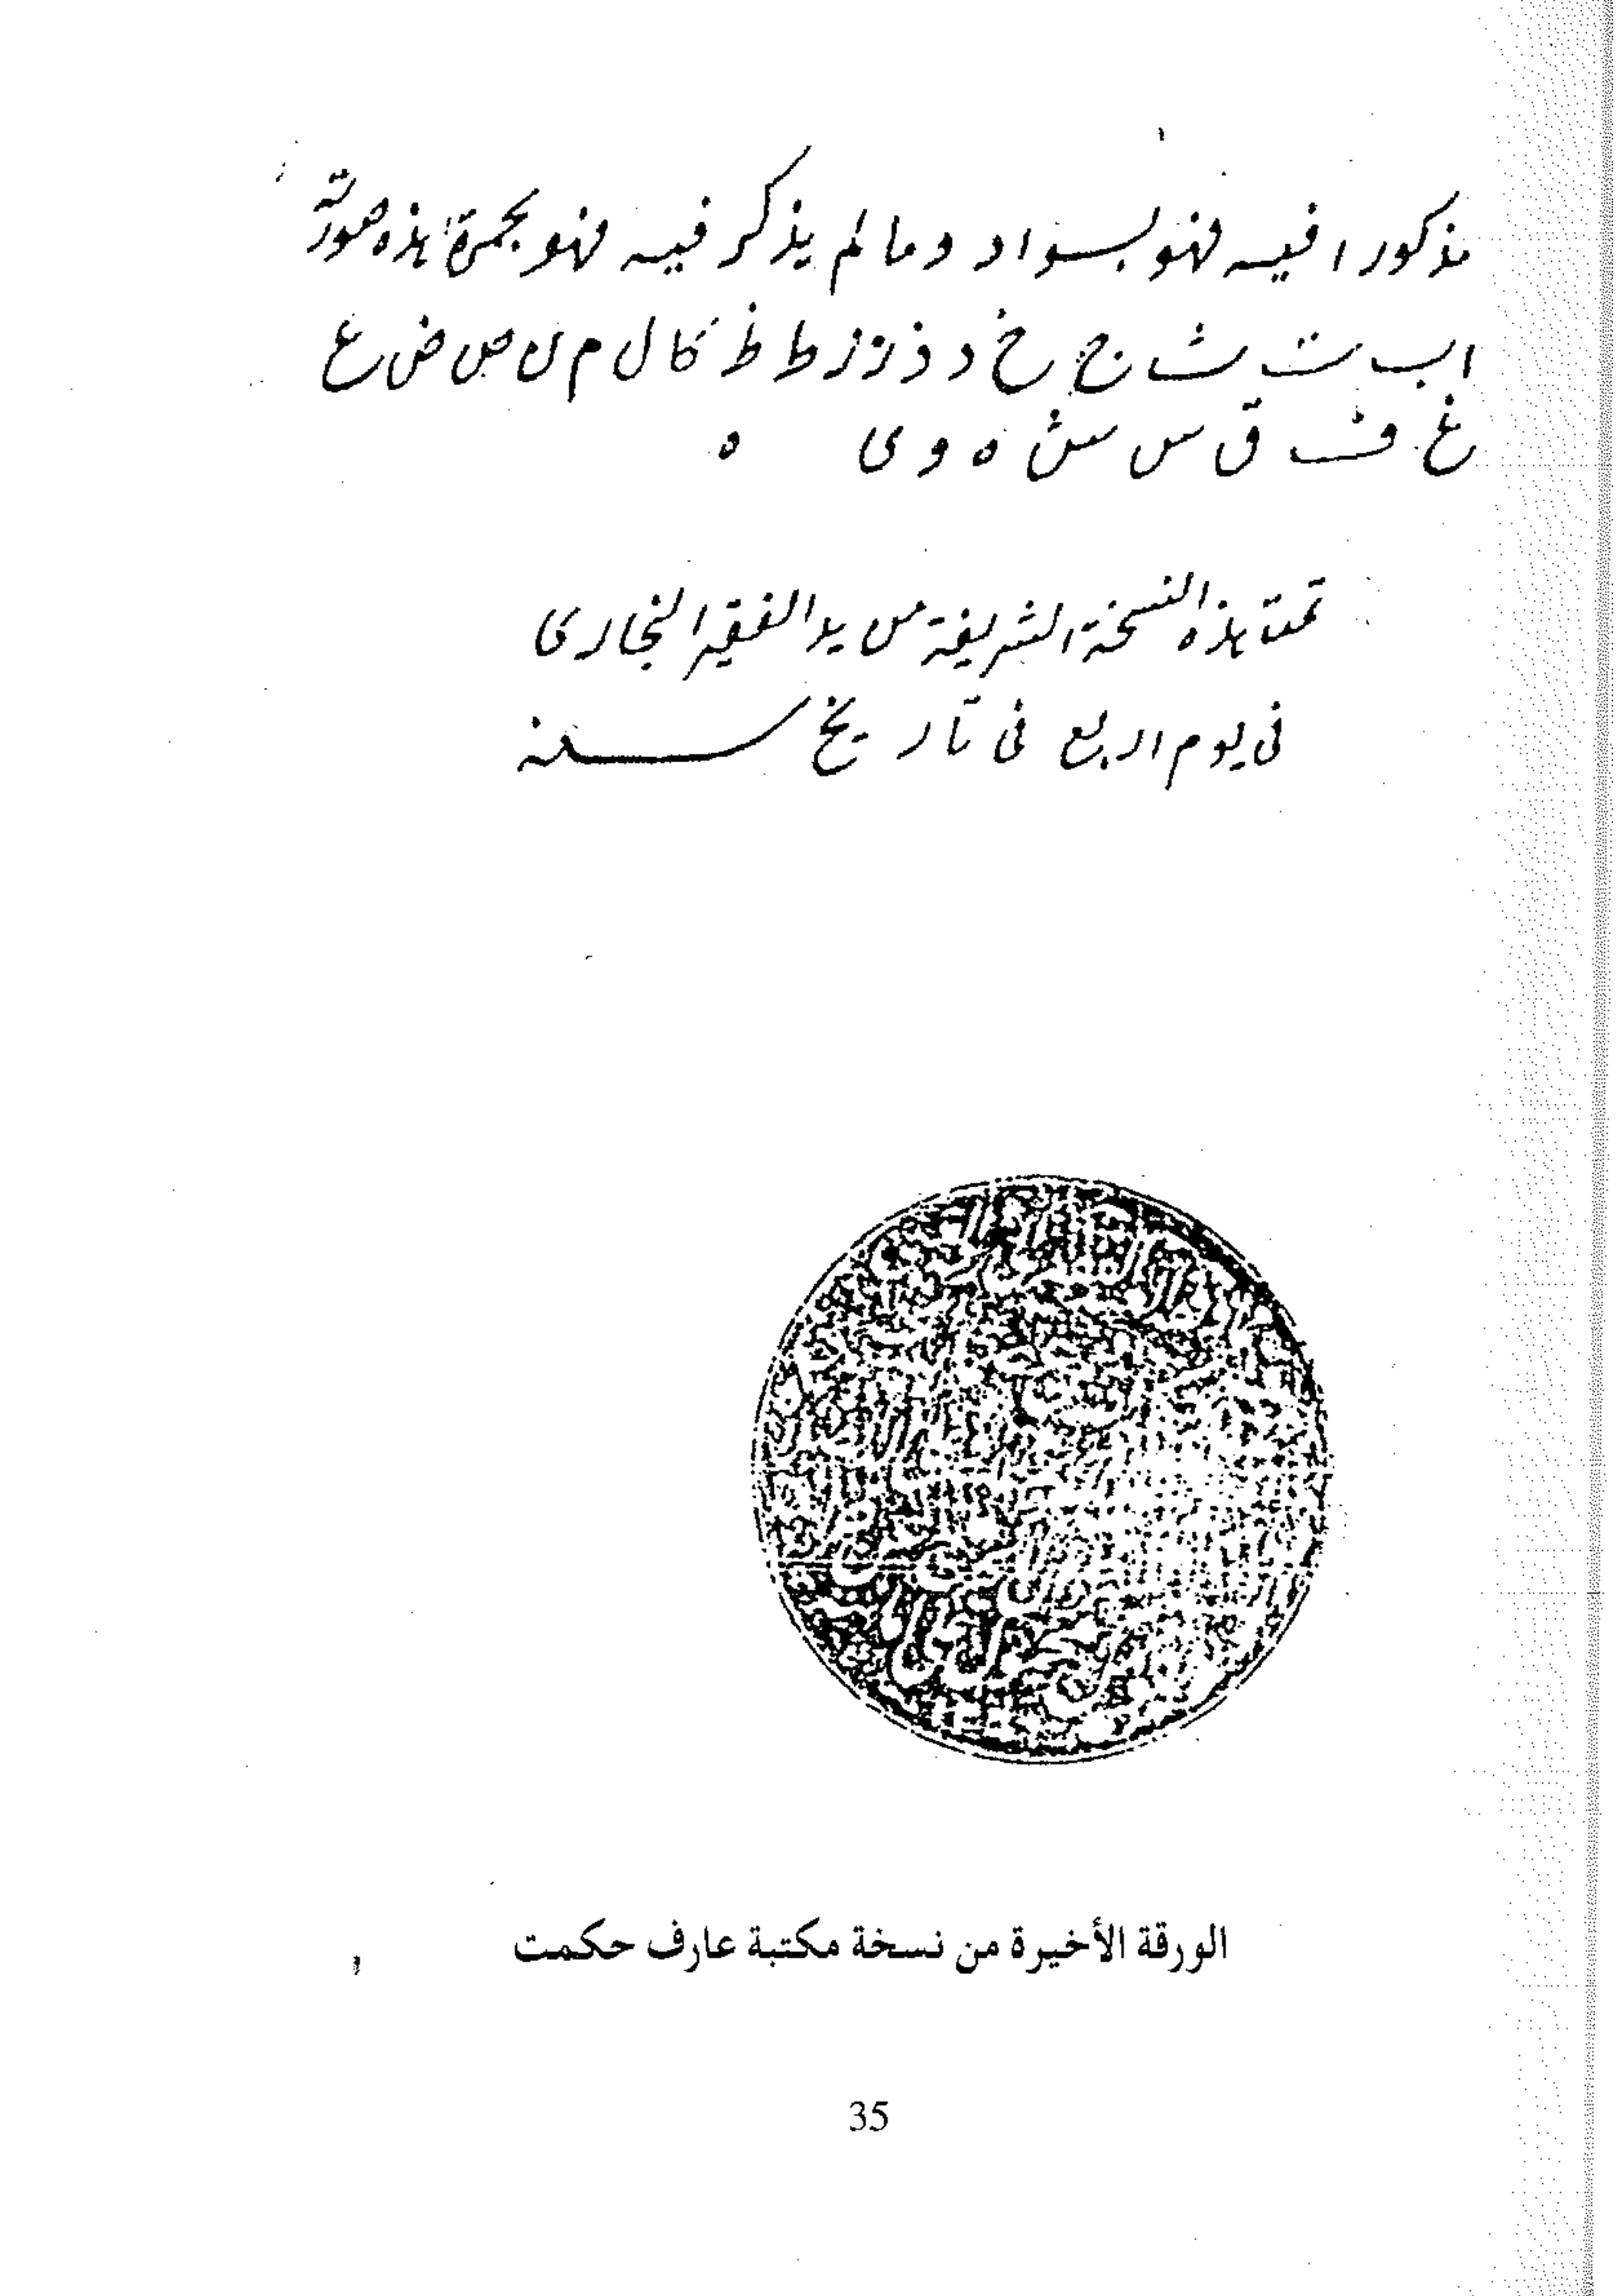 مذكورا فيه فهو بسواد وما لم يذكر فيه فهو بحمرة هذه صورته
ا ب ت ث ج خ د ذ ر ز ط ظ كا ل م ن ص ض ع
غ ف ق س ش ه و ى ه
تمت هذه النسخة الشريفة من يد الفقير البخارى
فى يوم اربع فى تاريخ سنة
الورقة الأخيرة من نسخة مكتبة عارف حكمت
35